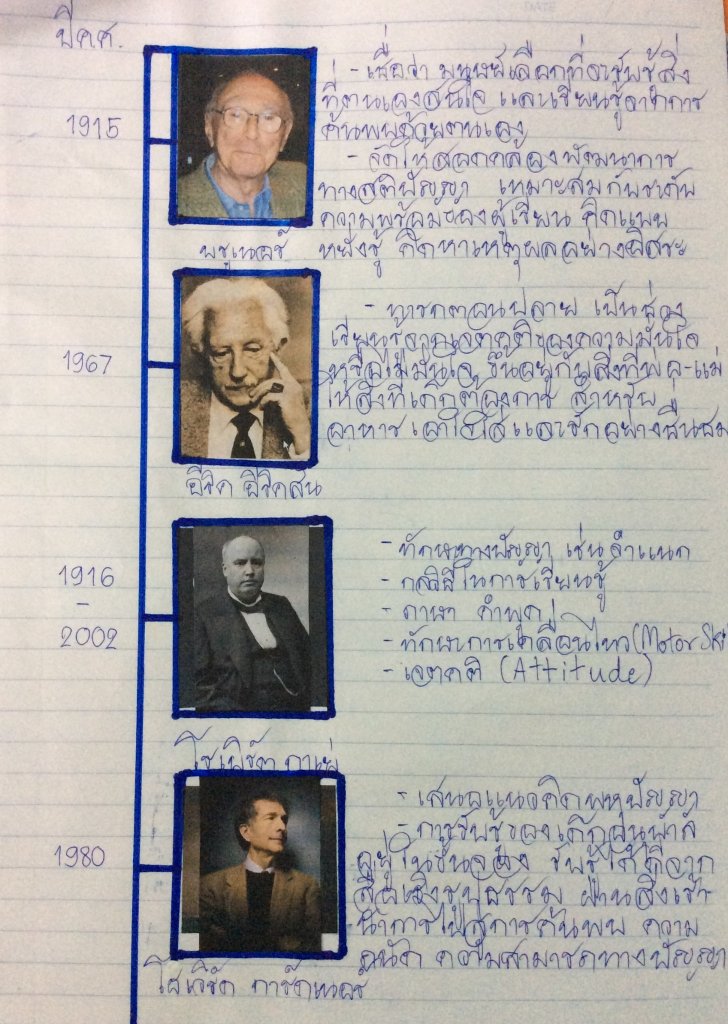 ปีคศ.
1915
- เชื่อว่า มนุษย์เลือกที่จะรับรู้สิ่ง
ที่ตนเองสนใจ และเรียนรู้จากการ
ค้นพบด้วยตนเอง
- จัดให้สอดคล้องพัฒนาการ
ทางสติปัญญา เหมาะสมกับระดับ
ความพร้อมของผู้เรียน คิดแบบ
หยั่งรู้ คิดหาเหตุผลอย่างอิสระ
บรูเนอร์
1967
- ทารกตอนปลาย เป็นช่วง
เรียนรู้เจตคติของความมั่นใจ
หรือไม่มั่นใจ ขึ้นอยู่กับสิ่งที่พ่อ-แม่
ให้สิ่งที่เด็กต้องการ สำหรับ
อาหาร เอาใจใส่ และรัก
อีริค อีริคสัน
1916
-
2002
- ทักษะทางปัญญา เช่น จำแนก
- กลวิธีในการเรียนรู้
- ภาษา คำพูด
- ทักษะการเคลื่อนไหว (Motor
- เจตคติ (Attitude)
โรเบิร์ต กาเย่
1980
- เสนอแนวคิดพหุปัญญา
- การรับรู้ของเด็ก
อยู่ใน รับรู้ได้ดีจาก
สื่อเชิงรูปธรรม ผ่านสิ่งเร้า
นำการไปสู่การค้นพบ ความ
ถนัด ความสามารถทางปัญญา
โฮเวิร์ด การ์ดเนอร์